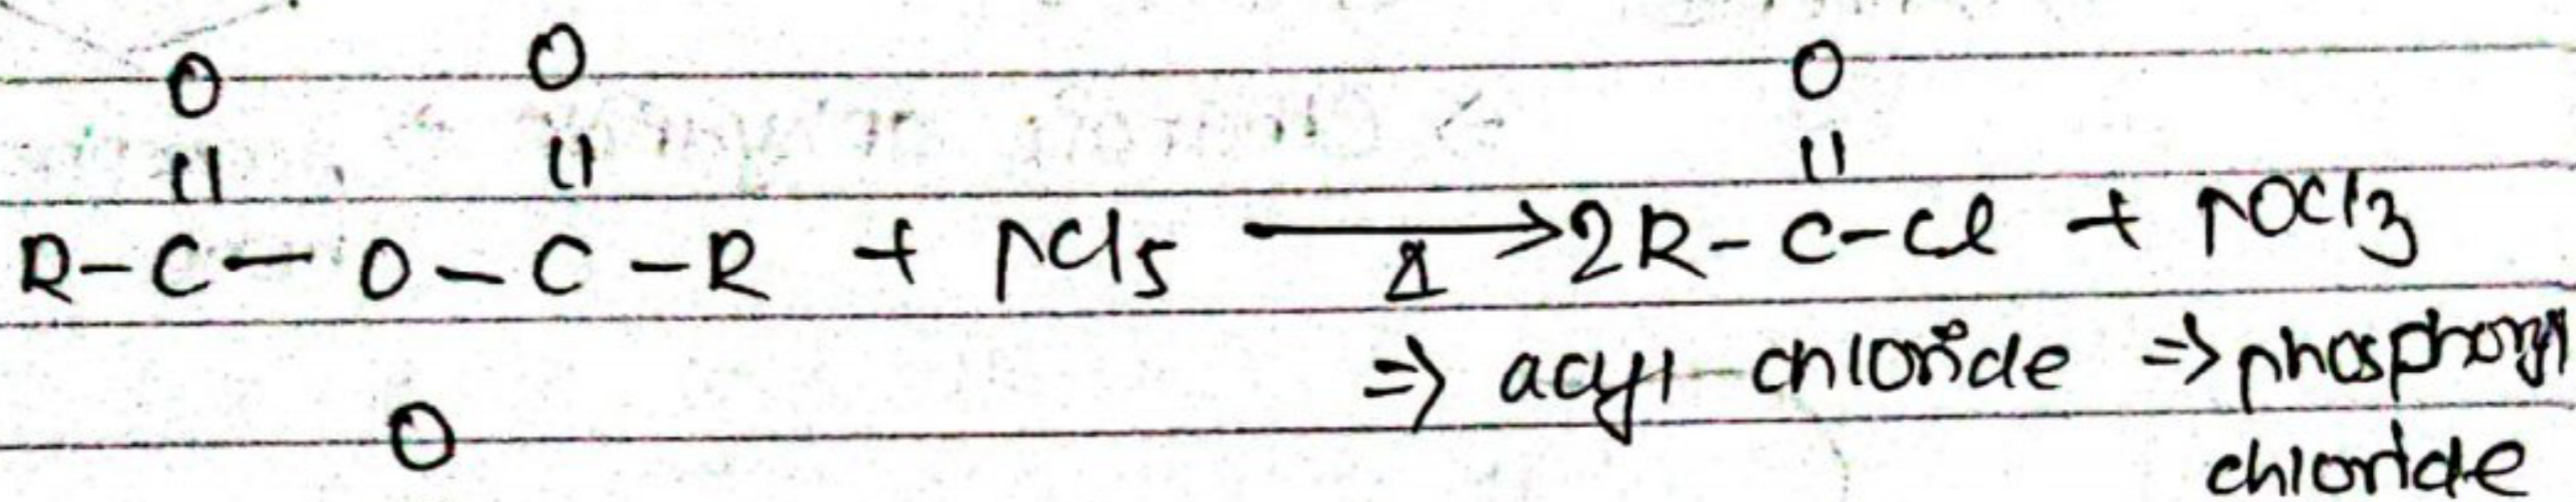 O O O
|| || ||
R-C-O-C-R + PCl5 →Δ 2R-C-Cl + POCl3
⇒ acyl chloride ⇒ phosphoryl
O chloride